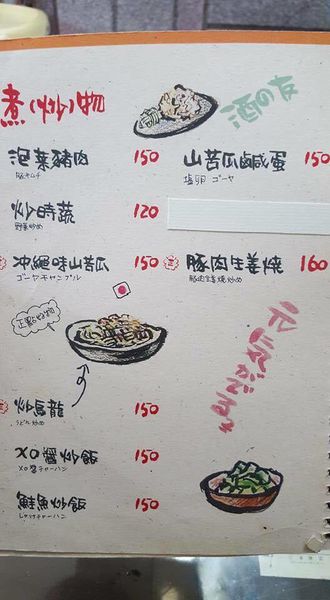 煮(炒)物
酒の友
泡菜豬肉 150
豚キムチ
山苦瓜鹹蛋 150
塩卵 ゴーヤ
炒時蔬 120
野菜炒め
沖繩味山苦瓜 150
ゴーヤチャンプル
豚肉生姜燒 160
豚肉生姜焼炒め
元気がでます
炒烏龍 150
うどん炒め
XO醬炒飯 150
XO醬チャーハン
鮭魚炒飯 150
しゃけチャーハン